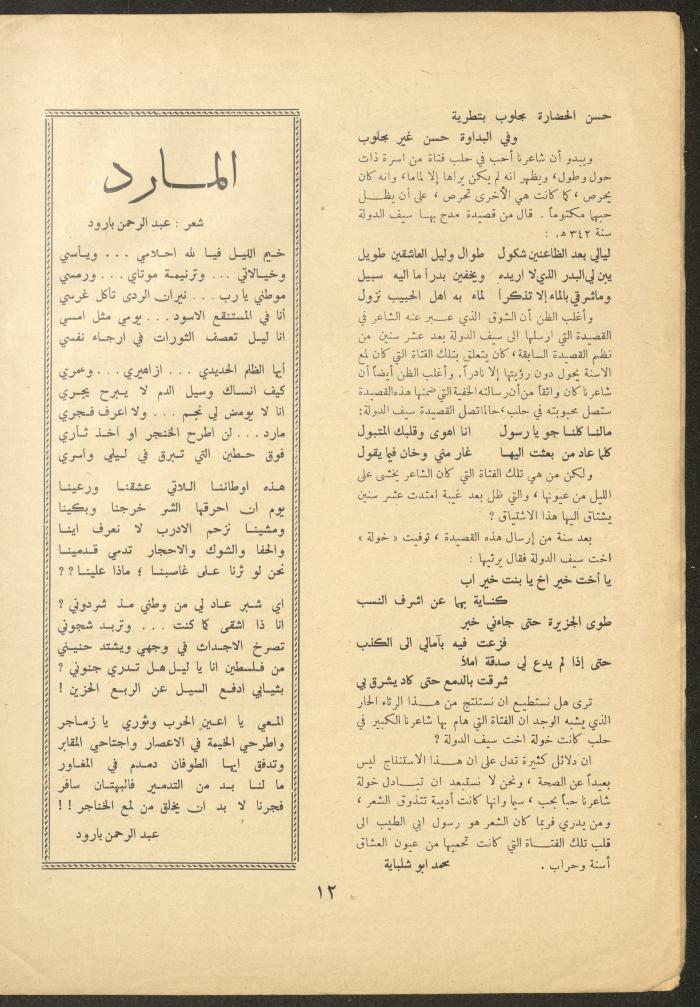 حسن الحضارة مجلوب بتطرية
وفي البداوة حسن غير مجلوب
ويبدو أن شاعرنا أحب في حلب فتاة من اسرة ذات
حول وطول، ويظهر انه لم يكن يراها إلا لماما، وانه كان
يحرص ، كما كانت هي الأخرى تحرص ، على أن يظل
حبهما مكتوماً . قال من قصيدة مدح بها سيف الدولة
سنة ٣٤٢ هـ :
ليالي بعد الظاعنين شكول طوال وليل العاشقين طويل
يبن لي البدر الذي لا اريده ويخفين بدراً ما اليه سبيل
وما شرقي بالماء إلا تذكراً لماء به اهل الحبيب نزول
وأغلب الظن أن الشوق الذي عبر عنه الشاعر في
القصيدة التي ارسلها الى سيف الدولة بعد عشر سنين من
نظم القصيدة السابقة، كان يتعلق بتلك الفتاة التي كان لمع
الاسنة يحول دون رؤيتها إلا نادراً. وأغلب الظن أيضاً أن
شاعرنا كان واثقاً من أن رسالته الخفية التي ضمنها هذه القصيدة
ستصل محبوبته في حلب، حالما تصل القصيدة سيف الدولة:
مالنا كلنا جو يا رسول انا اهوى وقلبك المتبول
كلما عاد من بعثت اليها غار مني وخان فيما يقول
ولكن من هي تلك الفتاة التي كان الشاعر يخشى على
الليل من عيونها ، والتي ظل بعد غيبة امتدت عشر سنين
يشتاق اليها هذا الاشتياق ؟
بعد سنة من إرسال هذه القصيدة ، توفيت « خولة »
اخت سيف الدولة فقال يرثيها :
يا أخت خير اخ يا بنت خير اب
كناية بهما عن اشرف النسب
طوى الجزيرة حتى جاءني خبر
فزعت فيه بآمالي الى الكذب
حتى إذا لم يدع لي صدقة املاً
شرقت بالدمع حتى كاد يشرق بي
ترى هل نستطيع ان نستنتج من هذا الرثاء الحار
الذي يشبه الوجد ان الفتاة التي هام بها شاعرنا الكبير في
حلب كانت خولة اخت سيف الدولة ؟
ان دلائل كثيرة تدل على ان هذا الاستنتاج ليس
بعيداً عن الصحة ، ونحن لا نستبعد ان تبادل خولة
شاعرنا حباً بحب ، سيما وانها كانت أديبة تتذوق الشعر ،
ومن يدري فربما كان الشعر هو رسول ابي الطيب الى
قلب تلك الفتاة التي كانت تحميها من عيون العشاق
أسنة وحراب . محمد ابو شلباية
المارد
شعر : عبد الرحمن بارود
خيم الليل فيا لله احلامي ... ويأسي
وخيالاتي ... وترنيمة موتاي ... ورمسي
موطني يا رب ... نيران الردى تأكل غرسي
أنا في المستنقع الاسود ... يومي مثل امسي
انا ليل تعصف الثورات في ارجاء نفسي
أيها الظلم الحديدي ... ازاهيري ... وعمري
كيف انساك وسيل الدم لا يبرح يجري
انا لا يومض لي نجم ... ولا اعرف فجري
مارد ... لن اطرح الخنجر او آخذ ثاري
فوق حطين التي تبرق في ليلي واسري
هذه اوطاننا اللاتي عشقنا ورعينا
يوم ان احرقها الشر خرجنا وبكينا
ومشينا نزحم الادرب لا نعرف اينا
والحفا والشوك والاحجار تدمي قدمينا
نحن لو ثرنا على غاصبنا ؛ ماذا علينا ؟؟
اي شبر عاد لي من وطني مذ شردوني ؟
انا ذا اشقى كما كنت ... وتربد شجوني
تصرخ الاجداث في وجهي ويشتد حنيني
من فلسطين انا يا ليل هل تدري جنوني ؟
بثيابي ادفع السيل عن الربع الحزين !
المعي يا اعين الحرب وثوري يا زماجر
واطرحي الخيمة في الاعصار واجتاحي المقابر
وتدفق ايها الطوفان دمدم في المغاور
ما لنا بد من التدمير فالبهتان سافر
فجرنا لا بد ان يخلق من لمع الخناجر !!
عبد الرحمن بارود
١٢